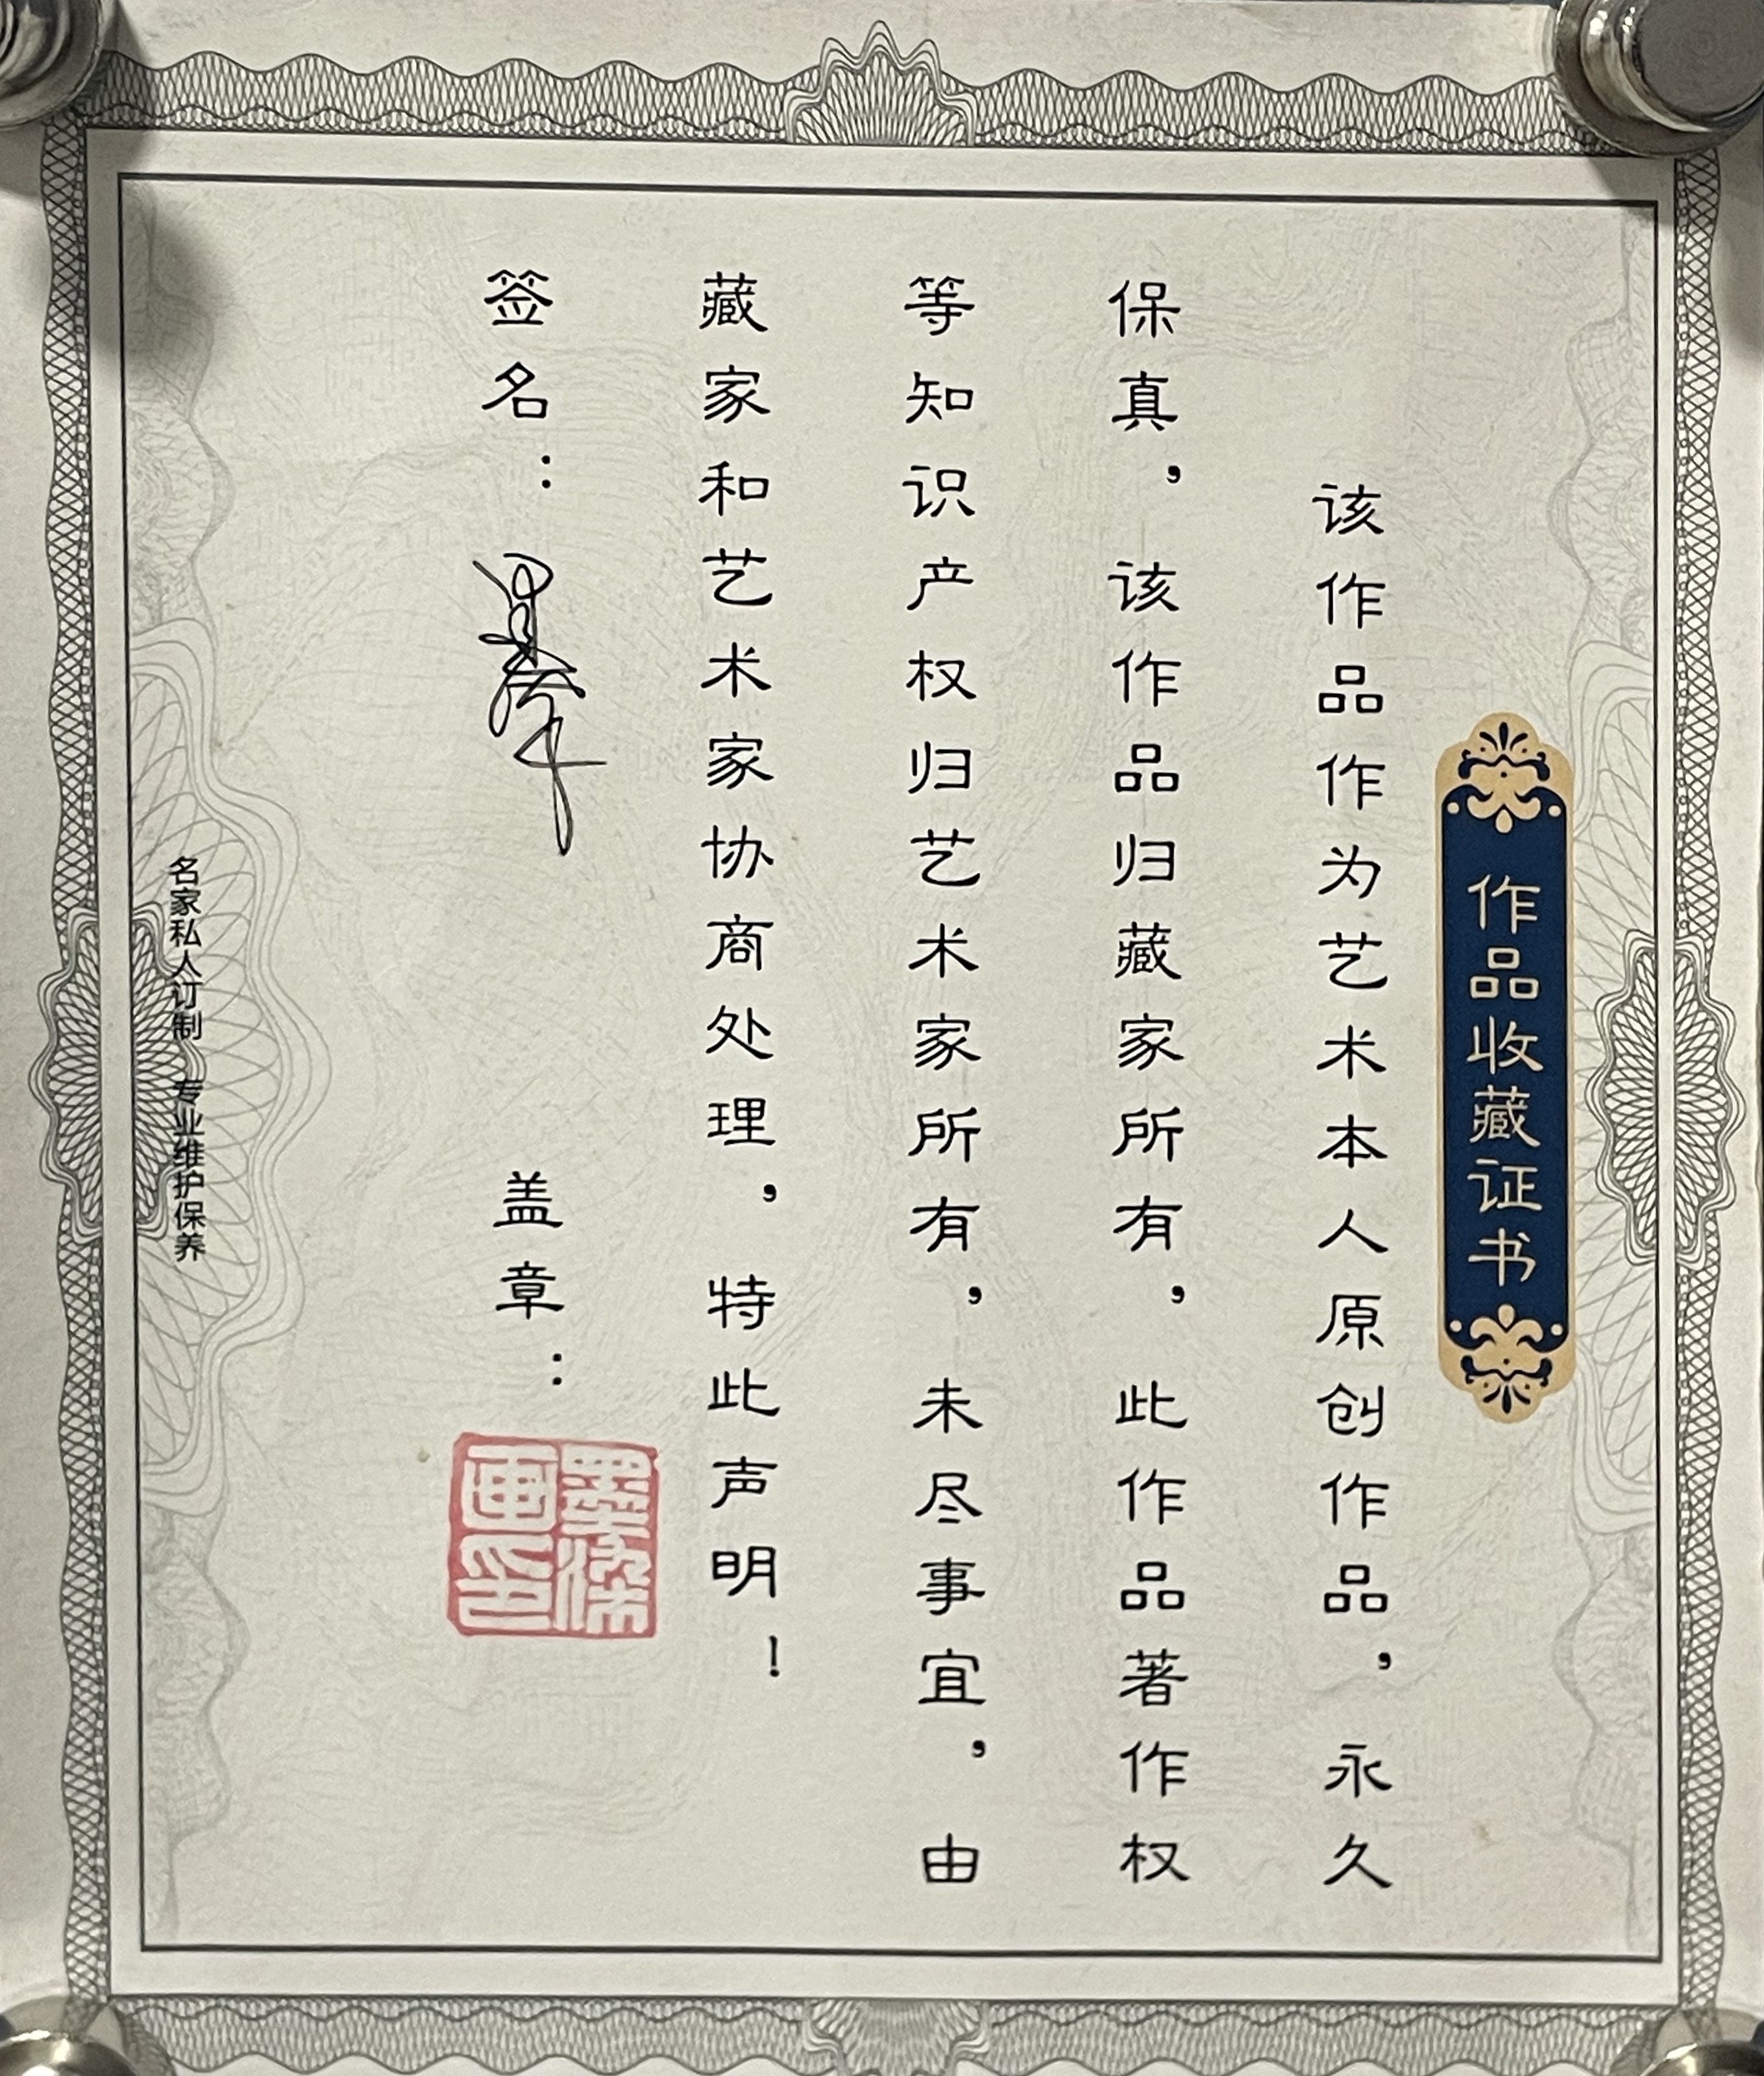 作品收藏证书
该作品作为艺术本人原创作品，永久
保真，该作品归藏家所有，此作品著作权
等知识产权归艺术家所有，未尽事宜，由
藏家和艺术家协商处理，特此声明！
签名： 盖章：
墨染
画印
名家私人订制 专业维护保养